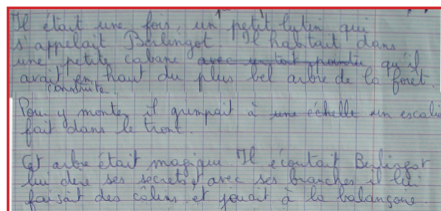 Il était une fois, un petit lutin qui
s'appelait Berlingot. Il habitait dans
une petite cabane qu'il
avait construite en haut du plus bel arbre de la forêt.
Pour y monter il grimpait à une échelle un escalier
fait dans le tront.
Cet arbre était magique Il écoutait Berlingot
lui dire ses secrets, avec ses branches il lui
faisait des câlins et jouait à la balançoire.